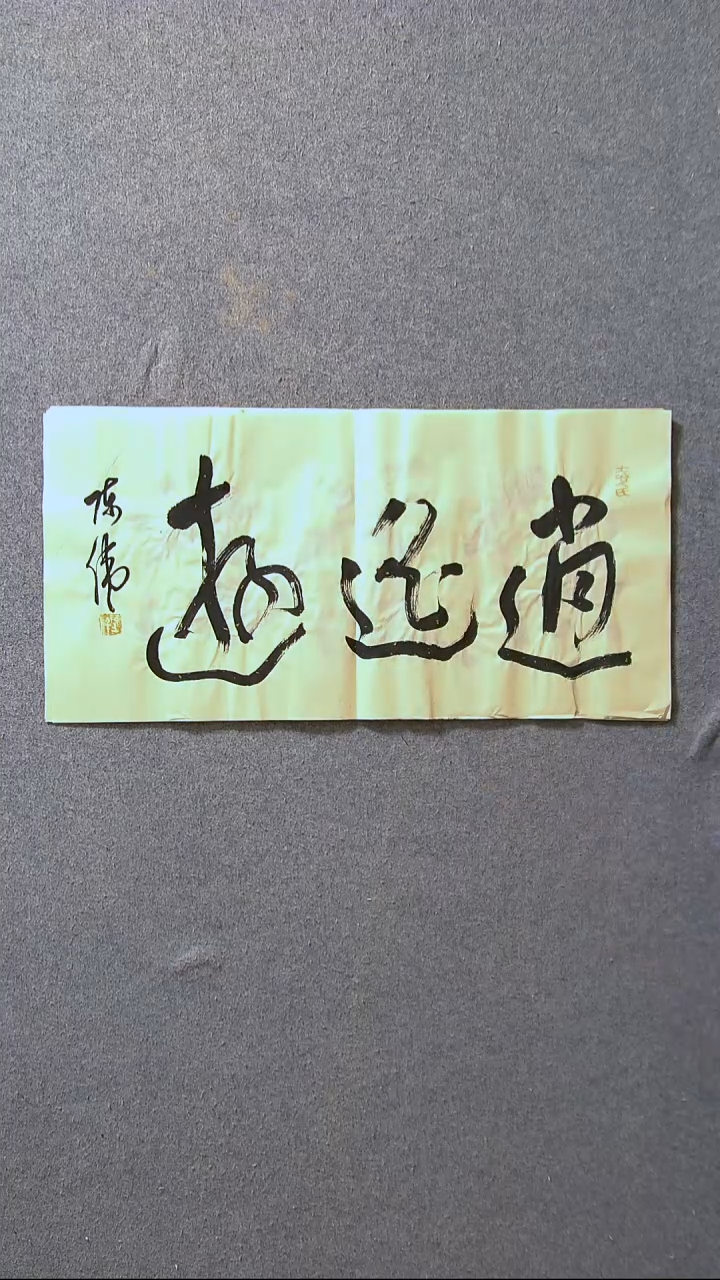 逍遥遊
陈伟